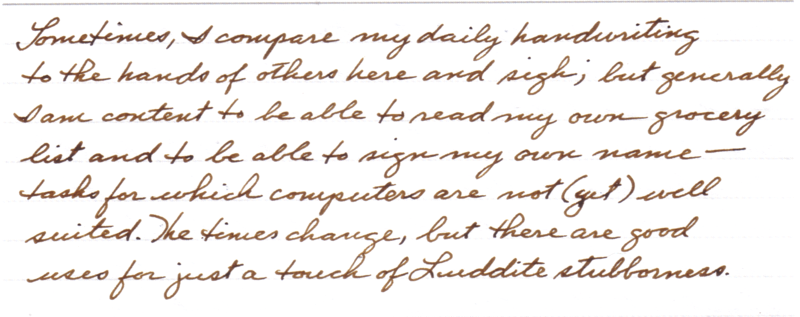 Sometimes, I compare my daily handwriting
to the hands of others here and sigh; but generally
I am content to be able to read my own grocery
list and to be able to sign my own name —
tasks for which computers are not (yet) well
suited. The times change, but there are good
uses for just a touch of Luddite stubborness.